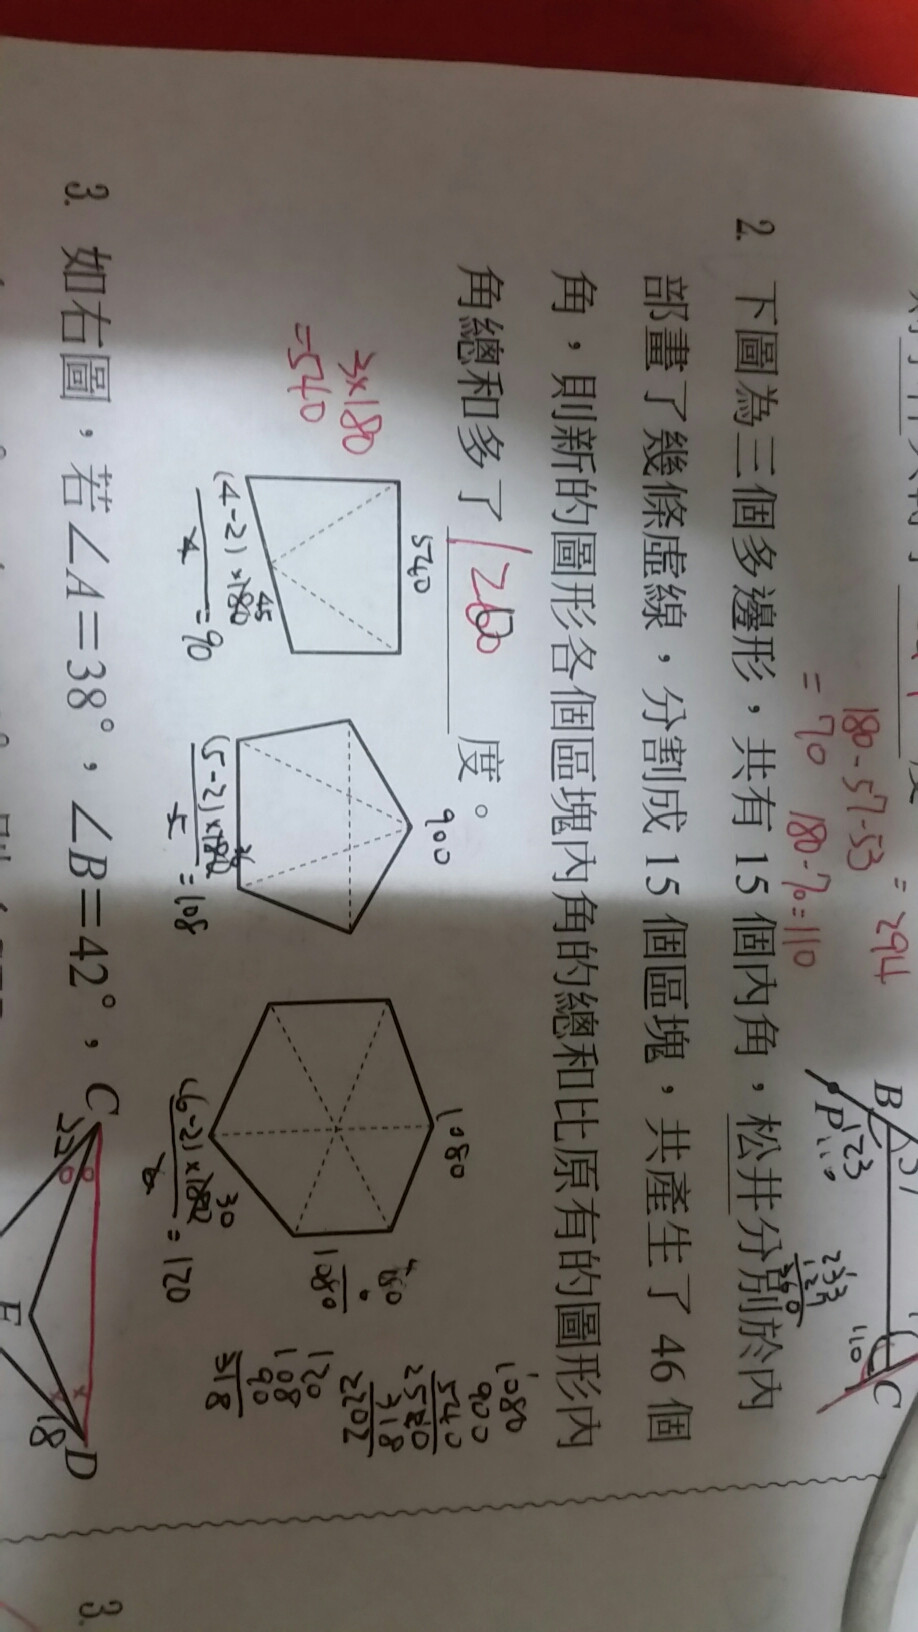 180-57-53
= 70
180-70=110
= 294
B
57
P
123
110
233
127
360
110
C
2. 下圖為三個多邊形，共有 15 個內角，松井分別於內
部畫了幾條虛線，分割成 15 個區塊，共產生了 46 個
角，則新的圖形各個區塊內角的總和比原有的圖形內
角總和多了 1260 度。
3×180
=540
540
900
1080
(4-2)×180
45
4
=90
(5-2)×180
36
5
=108
(6-2)×180
30
6
=120
1080
1080
900
540
2520
318
2202
120
108
90
318
3. 如右圖，若∠A=38°，∠B=42°，
C
22
E
18
D
3.